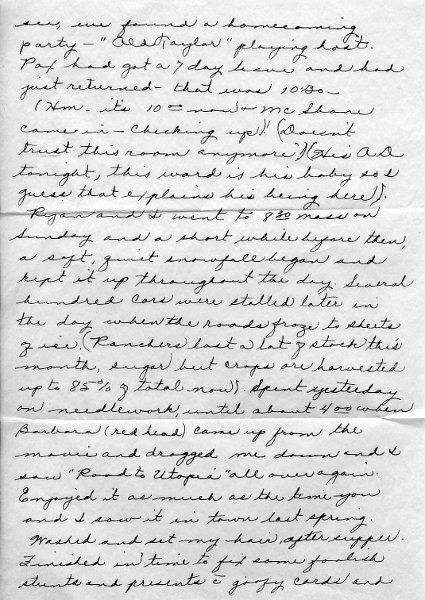 see, we found a homecoming
party — "Old Taylor" playing host.
Pax had got a 7 day leave and had
just returned — that was 10:00 —
(Hm — it's 10 00 now + Mc Shane
came in — checking up)! (Doesn't
trust this room anymore)(His O.D.
tonight, this ward is his baby so I
guess that explains his being here).
Regan and I went to 8 30 mass on
Sunday and a short while before then,
a soft, quiet snowfall began and
kept it up throughout the day. Several
hundred cars were stalled later in
the day when the roads froze to sheets
of ice. (Ranchers lost a lot of stock this
month, sugar beet crops are harvested
up to 85% of total now). Spent yesterday
on needlework, until about 400 when
Barbara (red head) came up from the
movie and dragged me down and I
saw "Road to Utopia" all over again.
Enjoyed it as much as the time you
and I saw it in town last spring.
Washed and set my hair, after supper.
Finished in time to fix some foolish
stunts and presents c̄ goofy cards and